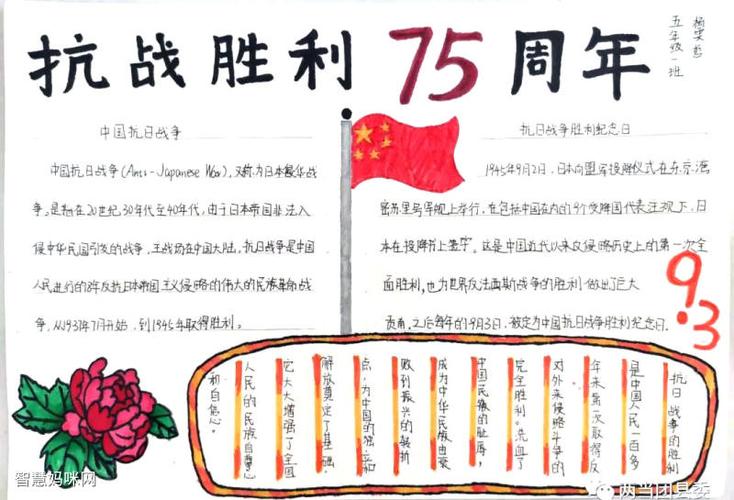 抗战胜利75周年
五年级一班
中国抗日战争
中国抗日战争(Anti-Japanese War),又称为日本侵华战
争。是指在20世纪30年代至40年代,由于日本帝国非法入
侵中华民国引发的战争,主战场在中国大陆。抗日战争是中国
人民进行的8年反抗日本帝国主义侵略的伟大的民族革命战
争,从1937年7月开始,到1945年取得胜利。
抗日战争胜利纪念日
1945年9月2日,日本向盟军投降仪式在东京湾
密苏里号军舰上举行,在包括中国在内的9个受降国代表注视下,日
本在投降书上签字。这是中国近代以来反侵略历史上的第一次全
面胜利,也为世界反法西斯战争的胜利做出了巨大
贡献。之后每年的9月3日,被定为中国抗日战争胜利纪念日.
9.3
抗日战争的胜利
是中国人民一百多
年来第一次取得反
对外来侵略斗争的
完全胜利。洗雪了
中国民族的耻辱,
成为中华民族由衰
败到振兴的转折
点,为中国的独立和
解放奠定了基础。
它大大增强了全国
人民的民族自尊心
和自信心。
智慧妈咪网
两当团县委